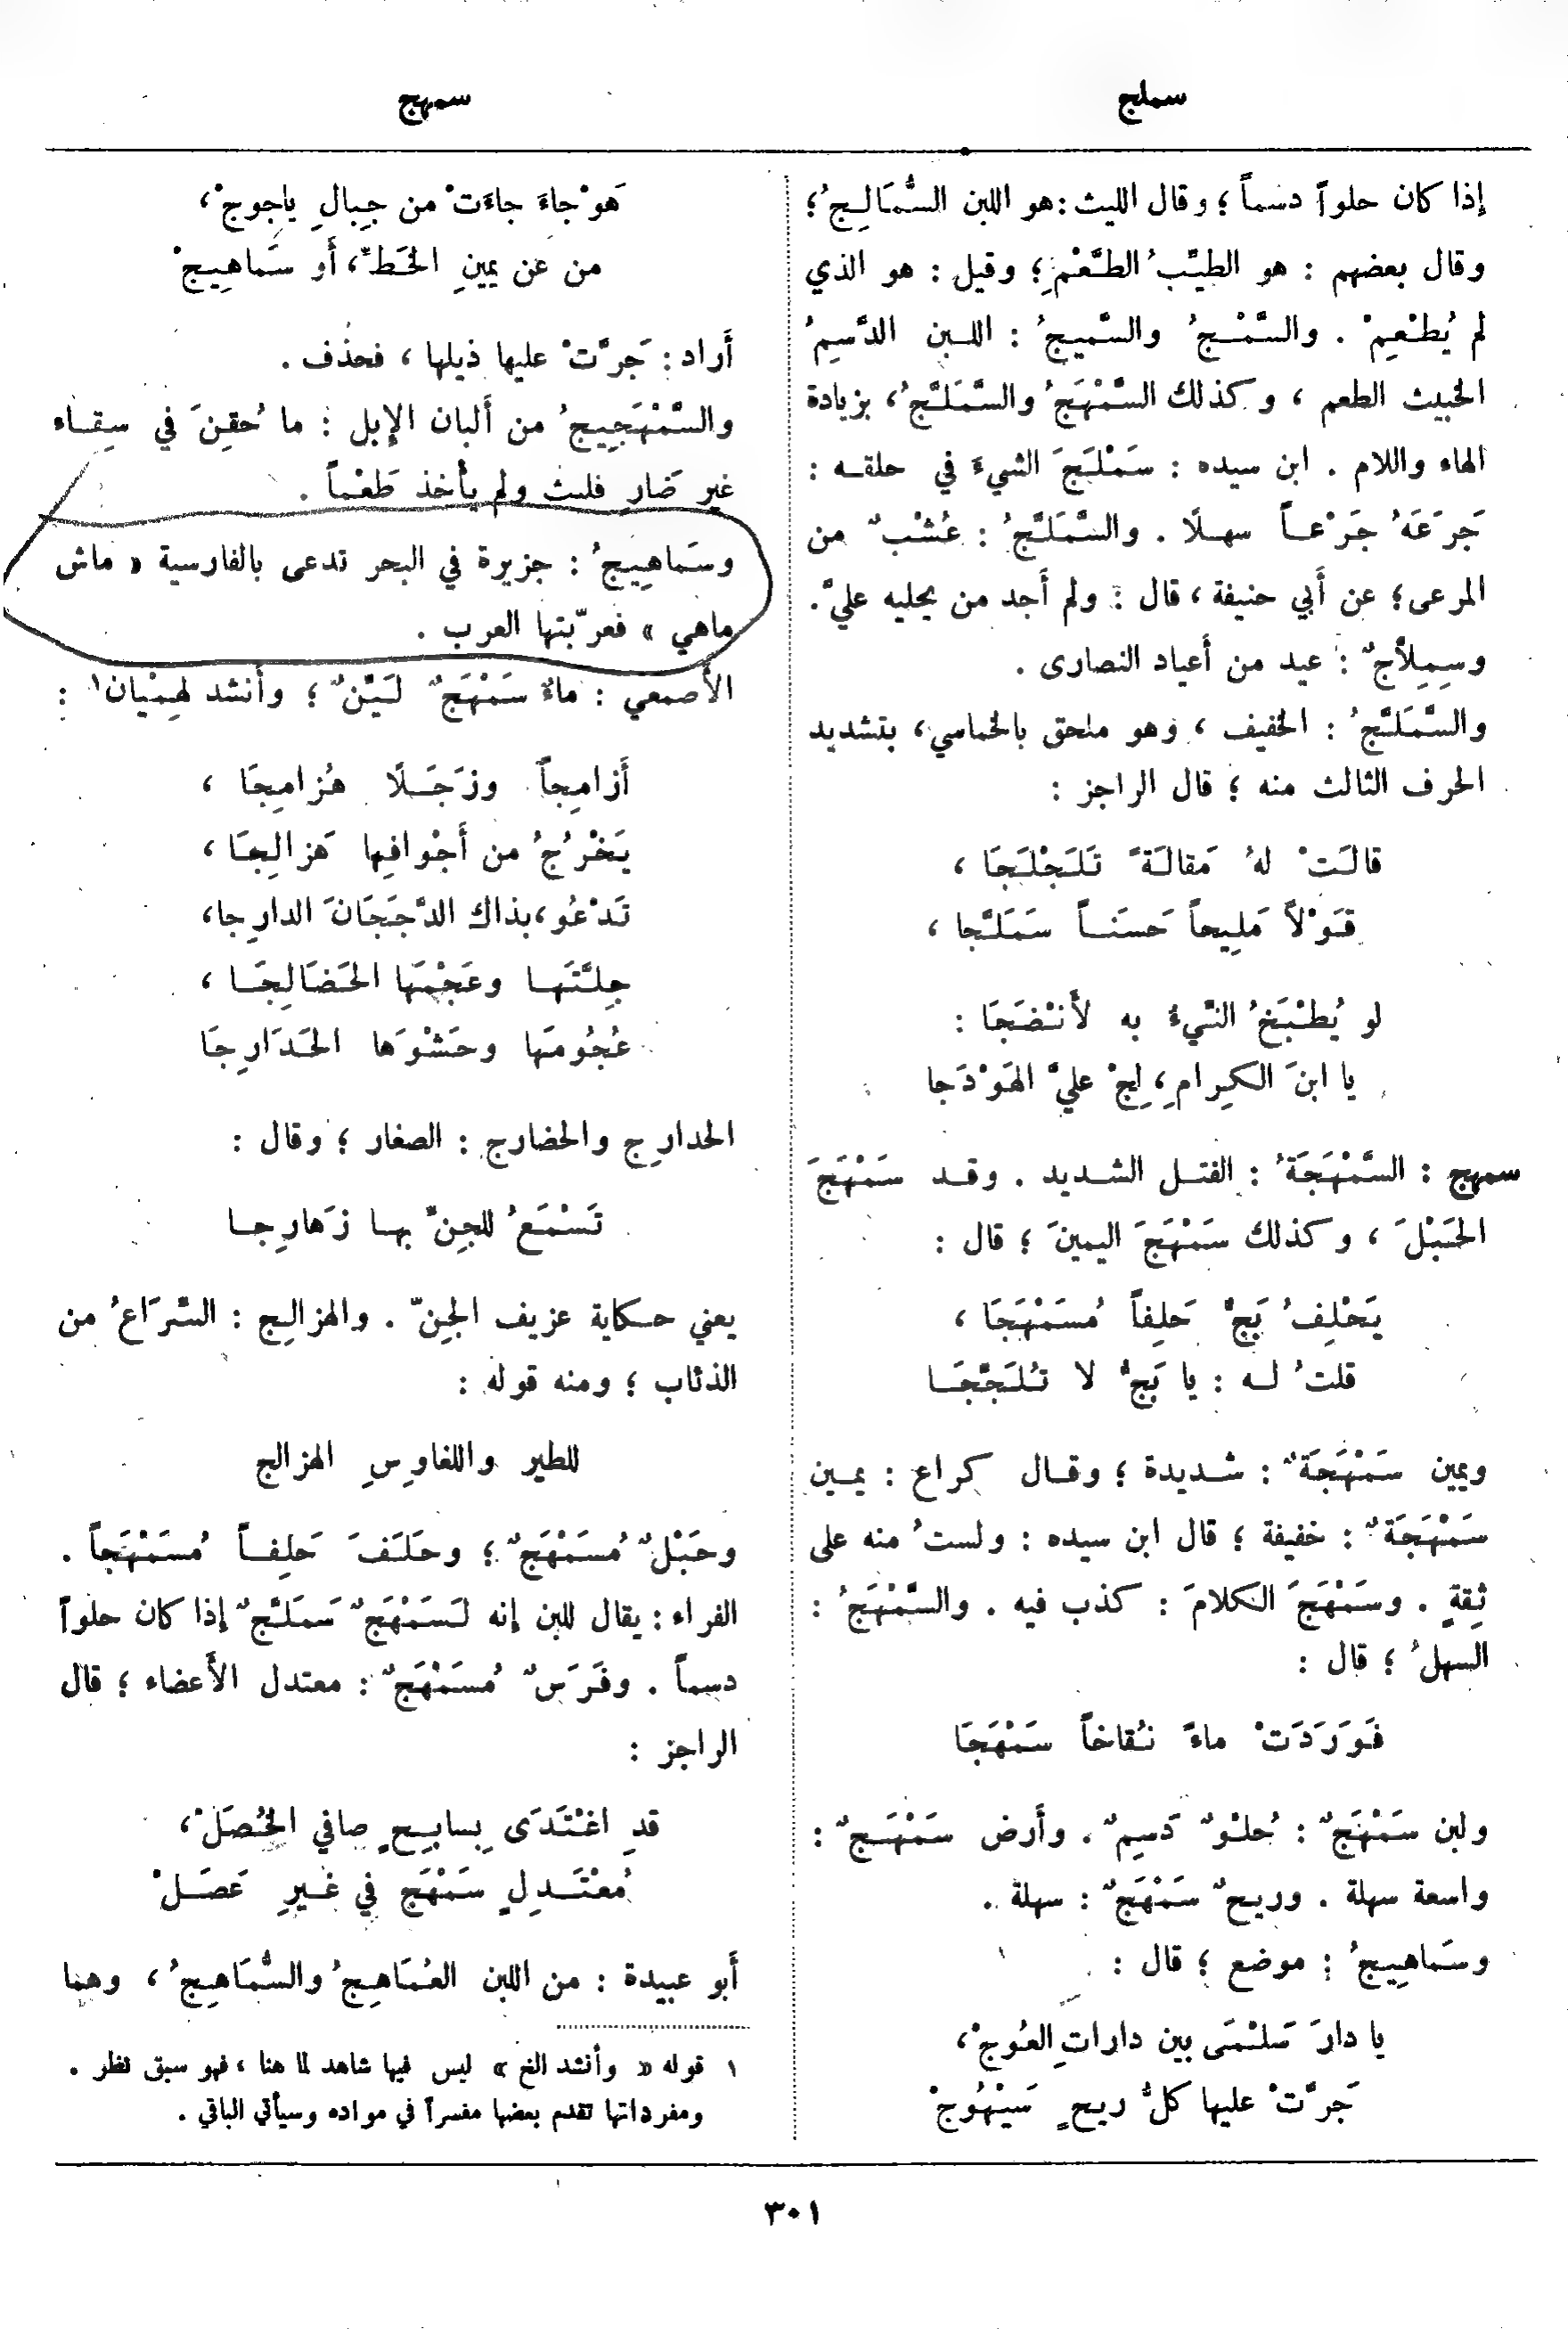 سملج
سمهج
إذا كان حلواً دسماً ؛ وقال الليث : هو اللبن السُّمَالِجُ ؛
وقال بعضهم : هو الطيِّبُ الطَّعْمِ ؛ وقيل : هو الذي
لم يُطْعِمْ . والسَّمْجُ والسَّمِيجُ : اللبن الدَّسِمُ
الخبيث الطعم ، وكذلك السَّمْهَجُ والسَّمَلَّجُ ، بزيادة
الهاء واللام . ابن سيده : سَمْلَجَ الشيءَ في حلقه :
جَرَعَهُ جَرْعاً سهلًا . والسَّمَلَّجُ : عُشْبٌ من
المرعى ؛ عن أَبي حنيفة ، قال : ولم أَجد من يحليه عليَّ .
وسِمِلاَّجٌ : عيد من أَعياد النصارى .
والسَّمَلَّجُ : الخفيف ، وهو ملحق بالخماسي ، بتشديد
الحرف الثالث منه ؛ قال الراجز :
قالَتْ لهُ مَقالَةً تَلَجْلَجَا ،
قَوْلاً مَلِيحاً حَسَناً سَمَلَّجا ،
لو يُطْبَخُ النِّيءُ به لأَنْضَجَا :
يا ابنَ الكِرامِ ، لِجْ عليَّ الهَوْدَجا
سمهج : السَّمْهَجَةُ : الفتل الشديد . وقد سَمْهَجَ
الحَبْلَ ، وكذلك سَمْهَجَ اليمينَ ؛ قال :
يَحْلِفُ بَجٌّ حَلِفاً مُسَمْهَجَا ،
قلتُ له : يا بَجُّ لا تُلَجِّجَا
ويمين سَمْهَجَةٌ : شديدة ؛ وقال كراع : يمين
سَمْهَجَةٌ : خفيفة ؛ قال ابن سيده : ولستُ منه على
ثِقةٍ . وسَمْهَجَ الكلامَ : كذب فيه . والسَّمْهَجُ :
السهلُ ؛ قال :
فَوَرَدَتْ ماءً نُقاخاً سَمْهَجَا
ولبن سَمْهَجٌ : حُلْوٌ دَسِمٌ . وأَرض سَمْهَجٌ :
واسعة سهلة . وريحٌ سَمْهَجٌ : سهلة .
وسَماهِيجُ : موضع ؛ قال :
يا دارَ سَلْمَى بين داراتِ العُوجْ ،
جَرَّتْ عليها كلُّ ريحٍ سَيْهُوجْ
هَوْجاءَ جاءَتْ من جِبالِ ياجوجْ ،
من عن يمينِ الخَطِّ ، أَو سَماهِيجْ
أَراد : جَرَّتْ عليها ذيلها ، فحذف .
والسَّمْهَجِيجُ من أَلبان الإبل : ما حُقِنَ في سِقاء
غير ضَارٍ فلبث ولم يأْخذ طَعْماً .
وسَماهِيجُ : جزيرة في البحر تدعى بالفارسية « ماش
ماهي » فعرّبتها العرب .
الأَصمعي : ماءٌ سَمْهَجٌ لَيِّنٌ ؛ وأَنشد لهِمْيان١ :
أَزامِجاً وزَجَلًا هُزامِجَا ،
يَخْرُجُ من أَجْوافِها هَزالِجَا ،
تَدْعُو ، بذاك الدَّجَجَانَ الدارِجا ،
جِلَّتَها وعَجْمَها الحَضَالِجَا ،
عُجُومَها وحَشْوَها الحَدَارِجَا
الحدارِج والحضارج : الصغار ؛ وقال :
تَسْمَعُ للجِنِّ بها زَهارِجا
يعني حكاية عزيف الجِنّ . والهزالِج : السِّرَاعُ من
الذئاب ؛ ومنه قوله :
للطير واللغاوِسِ الهزالج
وحَبْلٌ مُسَمْهَجٌ ؛ وحَلَفَ حَلِفاً مُسَمْهَجاً .
الفراء : يقال للبن إنه لَسَمْهَجٌ سَمَلَّجٌ إذا كان حلواً
دسماً . وفَرَسٌ مُسَمْهَجٌ : معتدل الأَعضاء ؛ قال
الراجز :
قدِ اغْتَدَى بِسابِحٍ صافي الخُصَلْ ،
مُعْتَدِلٍ سَمْهَجَ في غَيرِ عَصَلْ
أَبو عبيدة : من اللبن العُمَاهِجُ والسُّمَاهِجُ ، وهما
١ قوله « وأنشد الخ » ليس فيها شاهد لما هنا ، فهو سبق نظر .
ومفرداتها تقدم بعضها مفسراً في مواده وسيأتي الباقي .
٣٠١